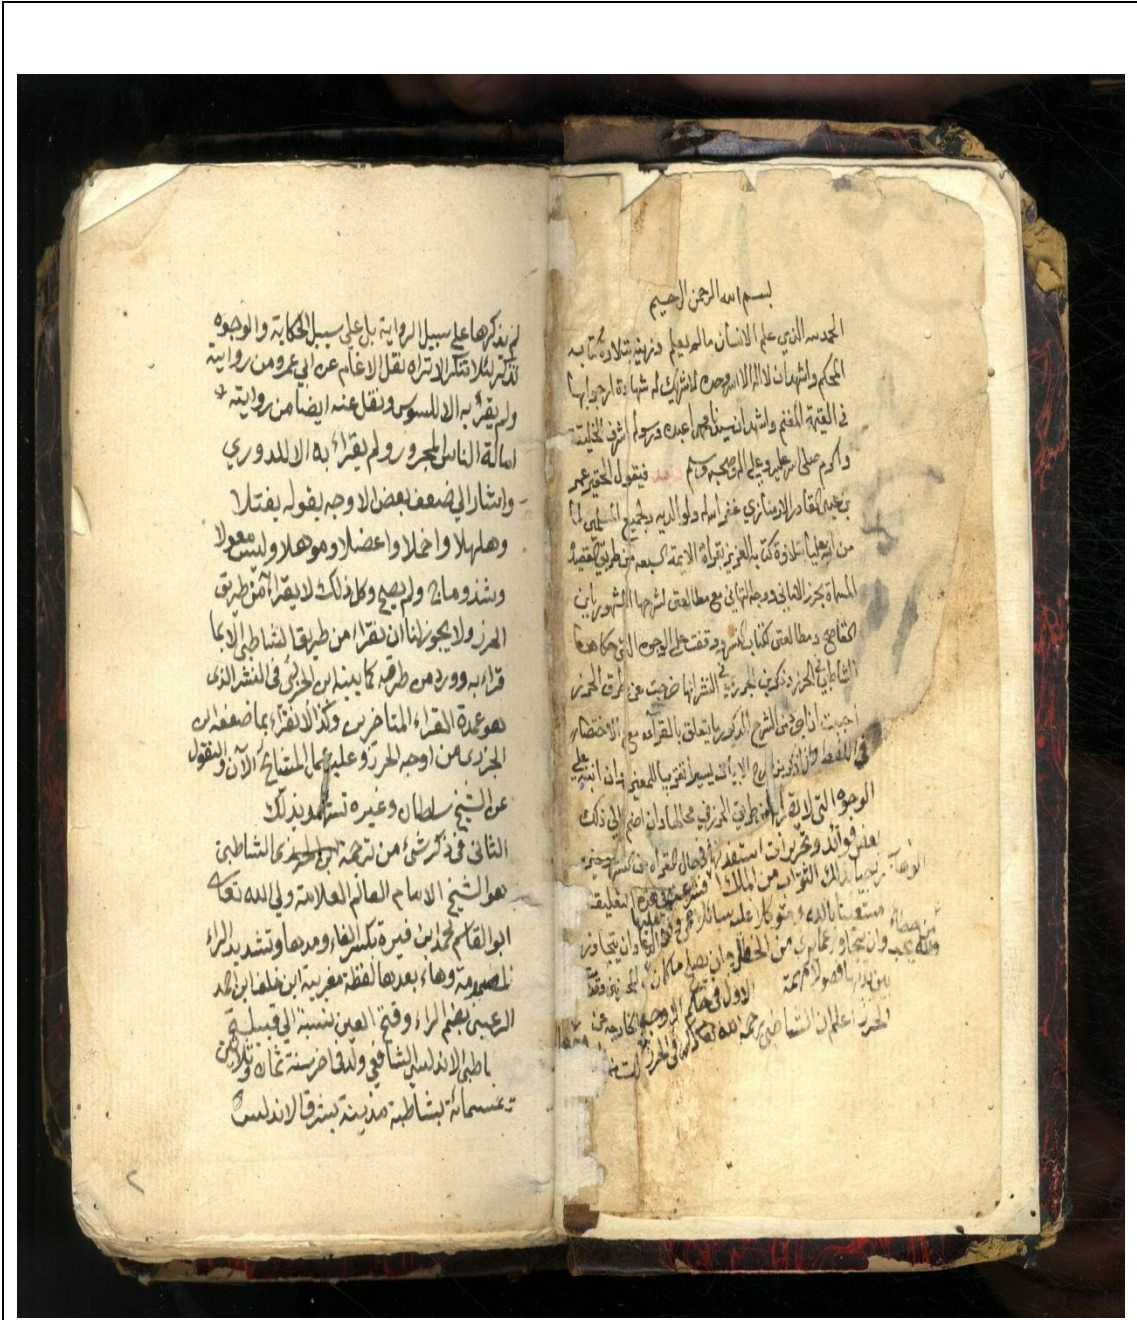 بسم الله الرحمن الرحيم
الحمد لله الذي علم الانسان مالم يعلم وزينه بتلاوة كتابه
المحكم واشهد ان لا اله الا الله وحده لا شريك له شهادة ارجو بها
في القيمة المغنم واشهد ان سيدنا محمدا عبده ورسوله اشرف الخليقة
واكرم صلى الله عليه وعلى اله وصحبه وسلم وبعد فيقول الحقير عمر
بن عبد القادر الارمنازي غفر الله له ولوالديه ولجميع المسلمين لما
من الله علينا بتلاوة كتابه العزيز بقراة الايمة السبعه من طريق القصيدة
المسماة بحرز الاماني ووجه التهاني مع مطالعتي لشرحها المشهور بابن
القاصح ومطالعتي كتاب النشر ووقفت على الوجوه التي حكاها
الشاطبي في الحرز وذكر ابن الجزري في النشر انها خرجت عن طرق الحرز
احببت ان من الشرح المذكور ما يتعلق بالقراءه مع الاختصار
في اللفظ وان اذكر من الابيات يسيرا تقريبا للمعنى وان انبه على
الوجوه التي لا يقرا بها من طريق الحرز في محالها وان اضم الى ذلك
بعض فوائد وتحريرات استفدتها في حال القراءة من النشر وغيره
راجيا بذلك الثواب من الملك الوهاب فشرعت في هذه التعليقة
مستعينا بالله ومتوكلا عليه سائلا من وان يتجاوز
والله يجب وان يتجاوز عما يرى من الخطل وان يصلح ما كان
بين يديها فصولا مهمة الاول في حكم الاوجه الخارجه عن
الحرز اعلم ان الشاطبي رحمه الله تعالى ذكر في الحرز
لم يذكرها على سبيل الرواية بل على سبيل الحكاية والوجوه
تذكر لئلا تنكر الا تراه نقل الادغام عن ابي عمرو من روايتيه
ولم يقرأ به الا للسوسي ونقل عنه ايضا من روايتيه *
امالة الناس المجرور ولم يقراء به الا للدوري
واشار الى ضعف بعض الاوجه بقوله يفتلا
وهلهلا واخملا واعضلا وموهلا وليس معولا
وشذ وماج ولم يصح وكل ذلك لا يقراء من طريق
الحرز ولا يجوز لنا ان نقراء من طريق الشاطبي الا بما
قراء به وورد من طرقه كما بينه ابن الجزري في النشر الذي
هو عمدة القراء المتاخرين وكذا لا نقراء بما ضعفه ابن
الجزري من اوجه الحرز وعليه عمل المشايخ الآن والنقول
عن الشيخ سلطان وغيره تشهد بذلك
الثاني في ذكر شيء من ترجمة الشاطبي
هو الشيخ الامام العالم العلامة ولي الله تعالى
ابو القاسم محمد ابن فيره بكسر الفاء ومدها وتشديد الراء
المضمومة وهاء بعدها لفظة مغربية ابن خلف ابن احمد
الرعيني بضم الراء وفتح العين نسبة الى قبيلة
اطبي الاندلسي الشافعي ولد في اخر سنة ثمان وثلاثين
وخمسمائة بشاطبة مدينة بشرق الاندلس
٢